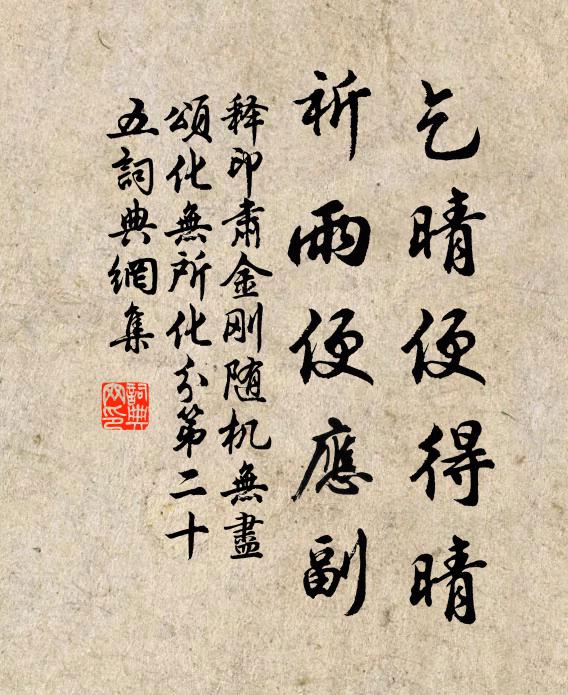 乞晴便得晴
祈雨便應副
释印肃金刚随机無盡
頌化無所化分第二十
五詞典網集
詞典
网印